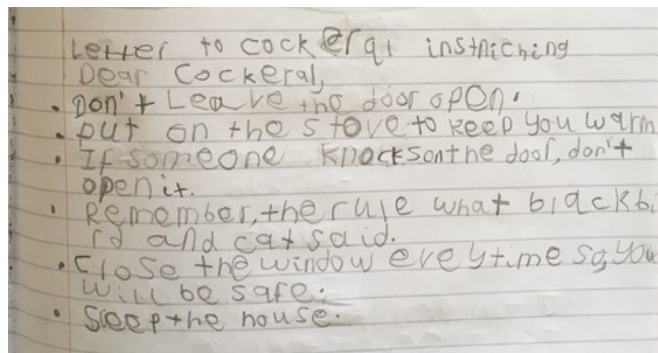 Letter to cockerqi instniching
Dear Cockeral,
• Don't Leave the door open.
• put on the stove to keep you warm
• If someone knocks on the door, don't
open it.
• Remember, the rule what blackbi
rd and cat said.
• Close the window everytime so, you
will be safe.
• Sleep the house.